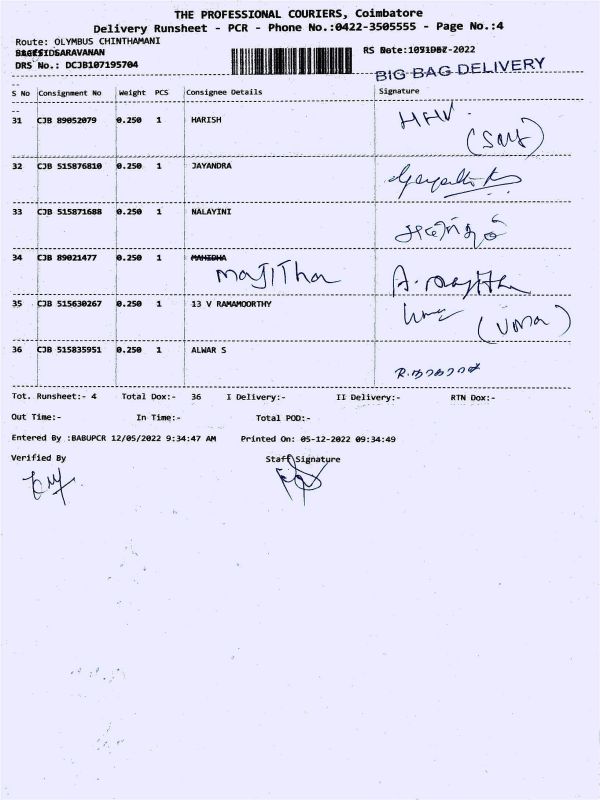 THE PROFESSIONAL COURIERS, Coimbatore
Delivery Runsheet - PCR - Phone No.:0422-3505555 - Page No.:4
Route: OLYMBUS CHINTHAMANI
SARAVANAN
RS Date: -2022
DRS No.: DCJB107195704
BIG BAG DELIVERY
S No Consignment No Weight PCS Consignee Details Signature
31 CJB 89052079 0.250 1 HARISH
32 CJB 515876810 0.250 1 JAYANDRA
33 CJB 515871688 0.250 1 NALAYINI
34 CJB 89021477 0.250 1 MAHIDHA
MaJITha
35 CJB 515630267 0.250 1 13 V RAMAMOORTHY
(Uma)
36 CJB 515835951 0.250 1 ALWAR S
Tot. Runsheet:- 4 Total Dox:- 36 I Delivery:- II Delivery:- RTN Dox:-
Out Time:- In Time:- Total POD:-
Entered By :BABUPCR 12/05/2022 9:34:47 AM Printed On: 05-12-2022 09:34:49
Verified By Staff Signature